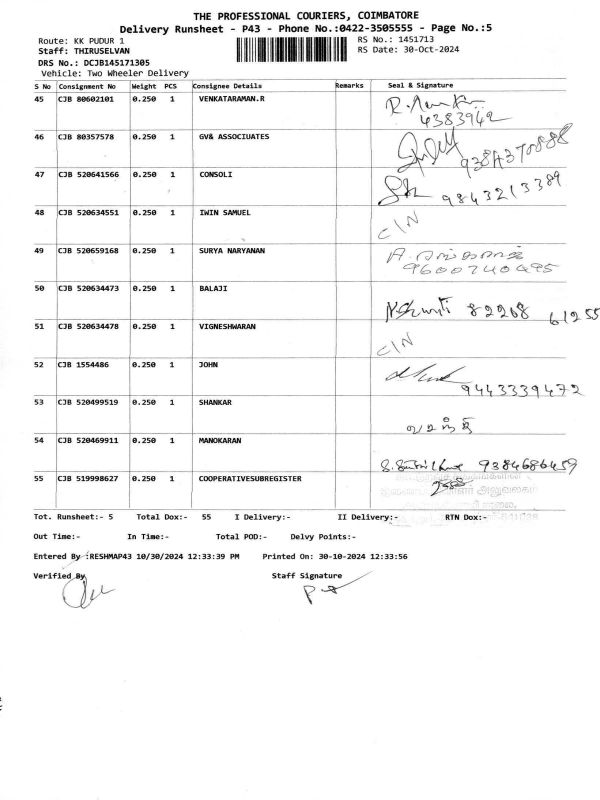 THE PROFESSIONAL COURIERS, COIMBATORE
Delivery Runsheet - P43 - Phone No.:0422-3505555 - Page No.:5
Route: KK PUDUR 1
RS No.: 1451713
Staff: THIRUSELVAN
RS Date: 30-Oct-2024
DRS No.: DCJB145171305
Vehicle: Two Wheeler Delivery
S No Consignment No Weight PCS Consignee Details Remarks Seal & Signature
45 CJB 80602101 0.250 1 VENKATARAMAN.R
4383942
46 CJB 80357578 0.250 1 GV& ASSOCIUATES
47 CJB 520641566 0.250 1 CONSOLI 9843213389
48 CJB 520634551 0.250 1 IWIN SAMUEL C/N
49 CJB 520659168 0.250 1 SURYA NARYANAN
9600740495
50 CJB 520634473 0.250 1 BALAJI 82268 61255
51 CJB 520634478 0.250 1 VIGNESHWARAN C/N
52 CJB 1554486 0.250 1 JOHN
9443339472
53 CJB 520499519 0.250 1 SHANKAR
54 CJB 520469911 0.250 1 MANOKARAN
9384686459
55 CJB 519998627 0.250 1 COOPERATIVESUBREGISTER
Tot. Runsheet:- 5 Total Dox:- 55 I Delivery:- II Delivery:- RTN Dox:-
Out Time:- In Time:- Total POD:- Delvy Points:-
Entered By :RESHMAP43 10/30/2024 12:33:39 PM Printed On: 30-10-2024 12:33:56
Verified By Staff Signature